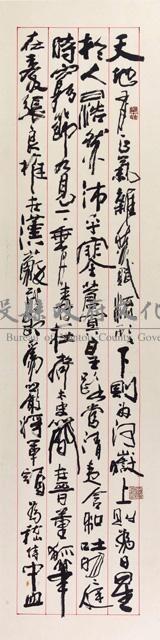 天地有正氣雜然賦流形下則為河嶽上則為日星
於人曰浩然沛乎塞蒼冥皇路當清夷含和吐明庭
時窮節乃見一一垂丹青在齊太史簡在晉董狐筆
在秦張良椎在漢蘇武節為嚴將軍頭為嵇侍中血
投縣政府文化
Bureau of Nantou County Gove